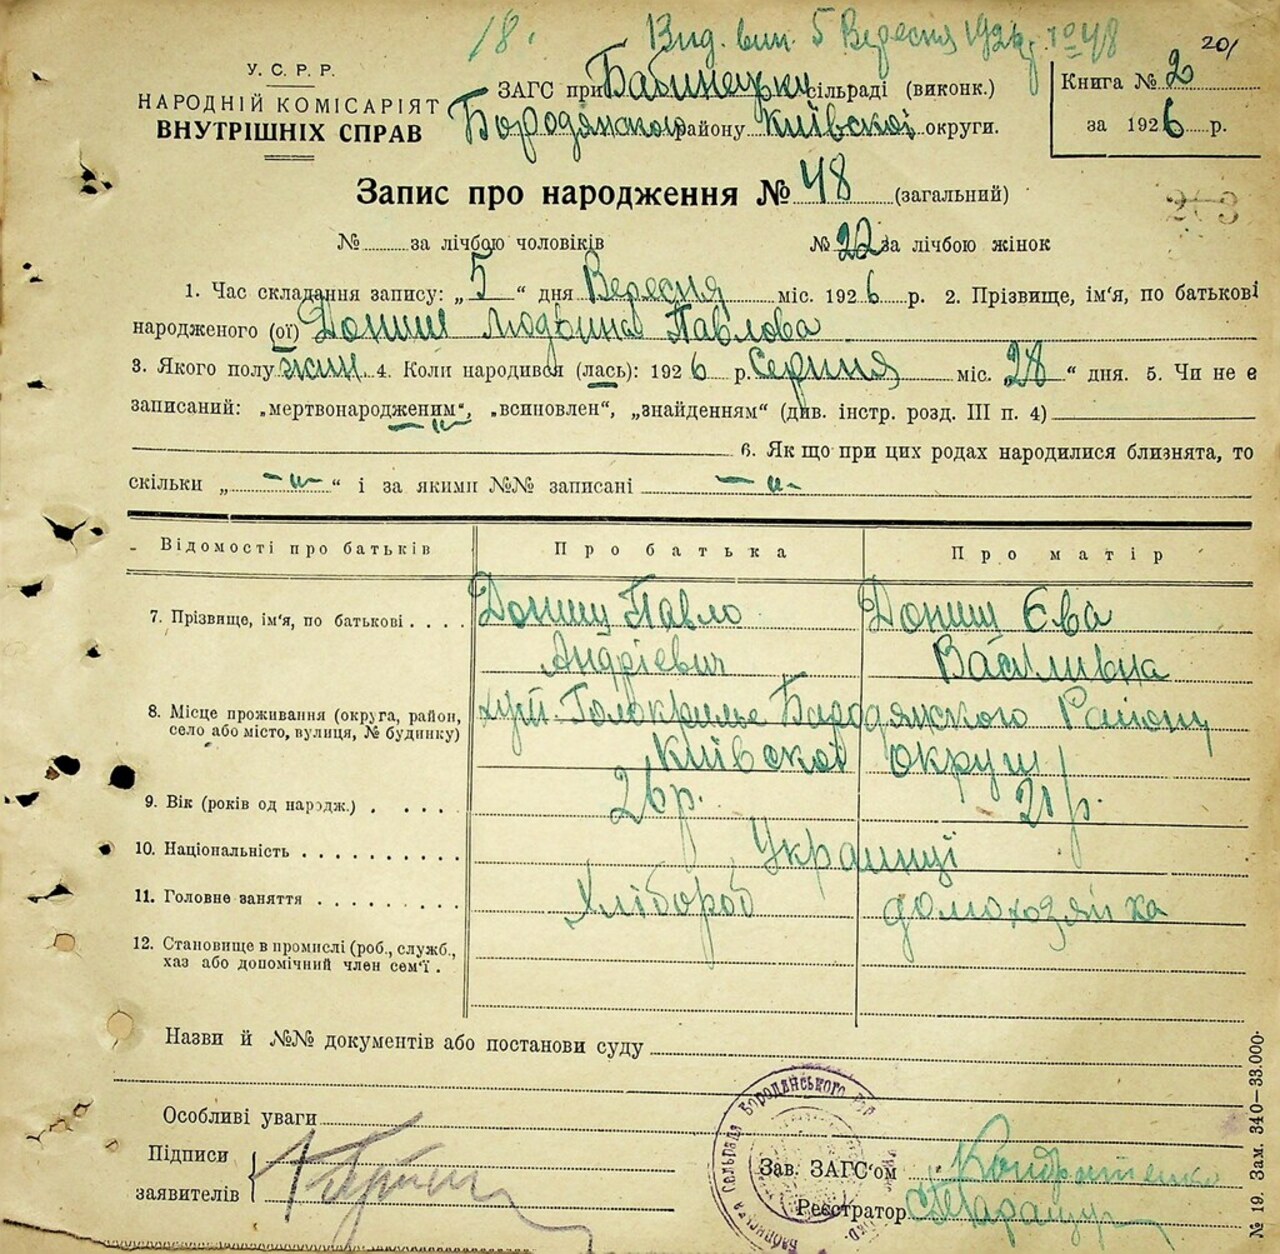 18. Вид. вип. 5 Вересня 1926 р. № 48
201
У. С. Р. Р.
НАРОДНІЙ КОМІСАРІЯТ
ВНУТРІШНІХ СПРАВ
ЗАГС при Бабинецкій сільраді (виконк.)
Бородянского району Київскоі округи.
Книга № 2
за 1926 р.
Запис про народження № 48 (загальний)
203
№ за лічбою чоловіків № 22 за лічбою жінок
1. Час складання запису: „5“ дня Вересня міс. 1926 р. 2. Прізвище, ім'я, по батькові
народженого (ої) Донищ Людвина Павлова
3. Якого полу жин. 4. Коли народився (лась): 1926 р. серпня міс. „28“ дня. 5. Чи не є
записаний: „мертвонародженим“, „всиновлен“, „знайденням“ (див. інстр. розд. III п. 4)
—„—
6. Як що при цих родах народилися близнята, то
скільки „ —„— “ і за якими №№ записані —„—
Відомості про батьків Про батька Про матір
7. Прізвище, ім'я, по батькові . . . . Донищ Павло Донищ Єва
Андрієвич Василивна
8. Місце проживання (округа, район, хут. Голокрилье Бародянского Району
село або місто, вулиця, № будинку) Київскоі округи
9. Вік (років од народж.) . . . . . 26 р. 21 р.
10. Національність . . . . . . . . . . Украинці
11. Головне заняття . . . . . . . . . Хлібороб домохозяйка
12. Становище в промислі (роб., служб.,
хаз або допомічний член сем'ї .
Назви й №№ документів або постанови суду
Особливі уваги
Підписи
заявителів
Зав. ЗАГС'ом Кондратенко
Реєстратор
Бородянського
Сельрада
№ 19. Зам. 340—33.000.